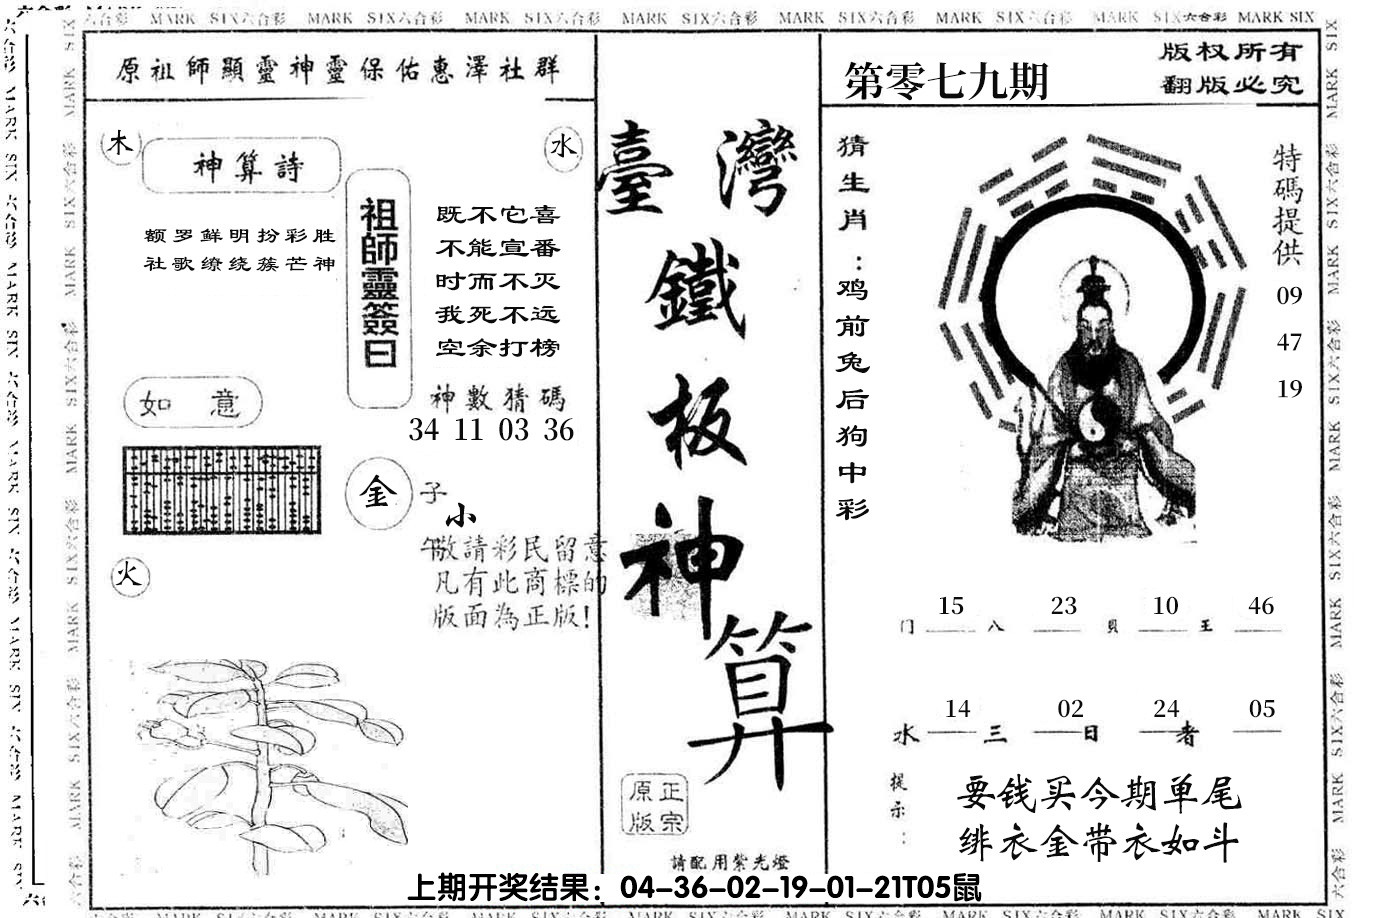 MARK SIX六合彩 MARK SIX六合彩 MARK SIX六合彩 MARK SIX六合彩 MARK SIX六合彩 MARK SIX六合彩 MARK SIX六合彩 MARK SIX
原祖師顯靈神靈保佑惠澤社群
木
水
神算詩
额罗鲜明扮彩胜
社歌缭绕蔟芒神
祖師靈簽曰
既不它喜
不能宣番
时而不灭
我死不远
空余打榜
神數猜碼
34 11 03 36
如 意
金
子
小
午
敬請彩民留意
凡有此商標的
版面為正版!
火
臺灣
鐵
板
神
算
原正
版宗
請配用紫光燈
第零七九期
版权所有
翻版必究
猜生肖:鸡前兔后狗中彩
特碼提供
09
47
19
15 23 10 46
门 八 貝 王
14 02 24 05
水 三 日 者
提示:
要钱买今期单尾
绯衣金带衣如斗
上期开奖结果：04-36-02-19-01-21T05鼠